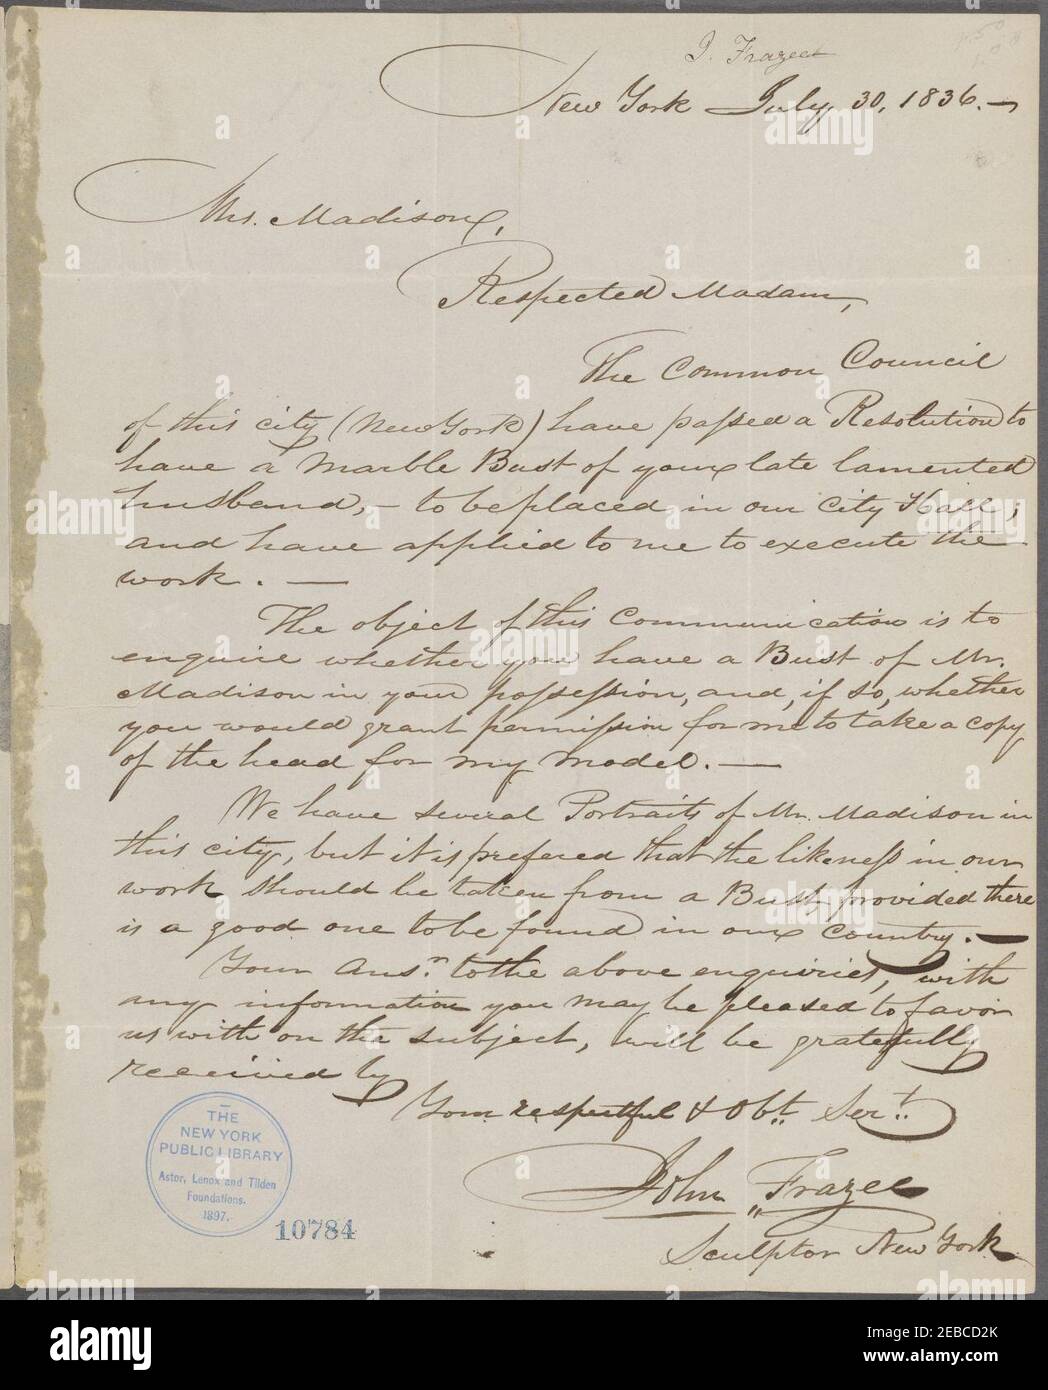 J. Frazee
New York July 30, 1836.
Mrs. Madison,
Respected Madam,
The Common Council
of this city (New York) have passed a Resolution to
have a Marble Bust of your late lamented
husband, – to be placed in our City Hall;
and have applied to me to execute the
work. —
The object of this Communication is to
enquire whether you have a Bust of Mr.
Madison in your possession, and, if so, whether
you would grant permission for me to take a copy
of the head for my model. —
We have several Portraits of Mr. Madison in
this city, but it is prefered that the likeness in our
work should be taken from a Bust, provided there
is a good one to be found in our Country. —
Your Ansr. to the above enquiries, with
any information you may be pleased to favor
us with on the subject, will be gratefully
received by
Your respectful & Obt. Sert.
John Frazee
Sculptor New York
THE
NEW YORK
PUBLIC LIBRARY
Astor, Lenox and Tilden
Foundations.
1897.
10784
alamy
Image ID: 2EBCD2K
www.alamy.com